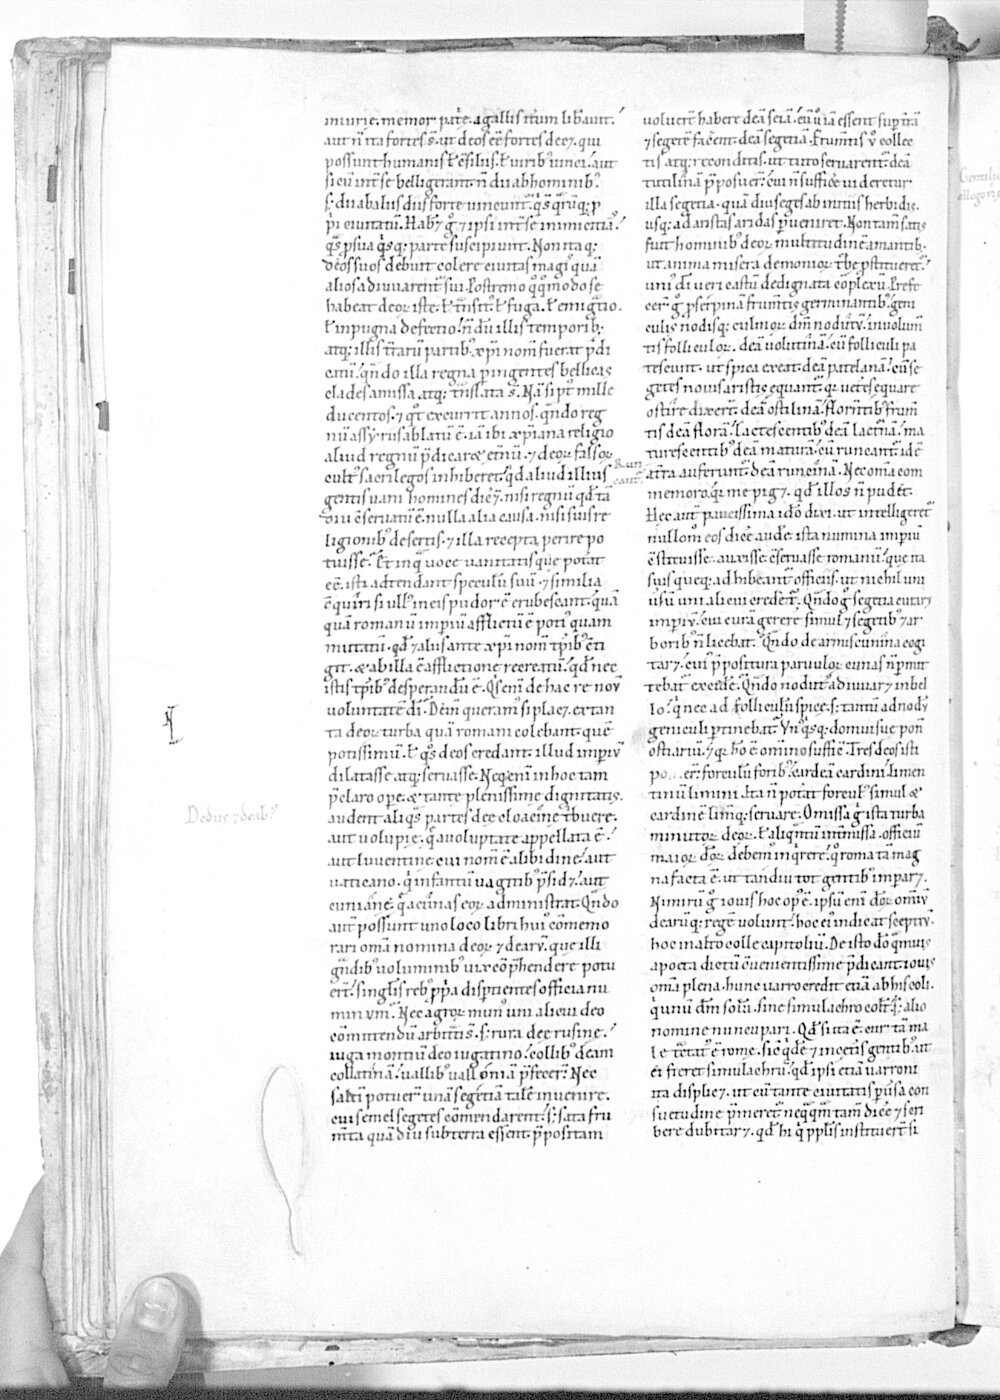 iniurie. memor pat̄e. a gallis it̄um lib̄auit.
aut n̄ ita fortes s̄. ut deos eē fortes dee⁊. qui
possunt humanis ł cōsiliis. ł uirib; uinci. aut
si cū int̄ se belligerant. n̄ dii ab hominib;
s; dii ab aliis diis forte uincunt̄. q̄s q̄rūq; p̄
p̄i ciuitatū. Hab⁊ g̊ ⁊ ipsi int̄ se inimicitia
q̄s p sua q̄sq; parte suscipiunt. Non itaq;
dōs suos debuit colere ciuitas magis quā
alios a diuuarent̄ sui. Postremo q̊q̊modo se
habeat deoꝝ iste. ł t̄nsit̄. ł fuga. ł emigr̄tio.
ł in pugna defectio. n̄dū illis temporib;
atq; illis t̄rarū partib; xp̄i nom̄ fuerat p̄di
catū. q̄ndo illa regna p ingentes bellicas
clades amissa atq; t̄nslata s̄. Nā si pt̄ mille
ducentos. ⁊ q̊d excurrit annos. q̄ndo reg
nū assyriis ablatū ē. iā ibi xp̄iana religio
aliud regnū p̄dicaret et̄nū. ⁊ deoꝝ falsoꝝ
cult̄ sacrilegos inhiberet. q̄d aliud illius
gentis uani homines dic̄e⁊. nisi regnū q̄d tā
diu cōseruatū ē. nulla alia causa. nisi suis re
ligionib; desertis. ⁊ illa recepta. perire po
tuisse. Et in q̄ uoce uanitatis que pot̄at
eē. isti adtendant speculū suū. ⁊ similia
cōquiri si ull; in eis pudor ē erubescant. quā
quā romanū imperiū afflictū ē poti; quam
mutatū. qđ ⁊ aliis ante xp̄i nom̄ tp̄ib; cōti
git. et ab illa ē afflictione recreatū. qđ nec
istis tp̄ib; desperandū ē. Q̄s enī de hac re nou̅
uoluntatē di. Dein̄ queram; si plac⁊. ex tan
ta deoꝝ turba quā romani colebant. que
potissimū. ł q̄s deos credant. illud imperiū
dilatasse atq; seruasse. Neq; enī in hoc tam
p̄claro ope. et tante plenissime dignitatis.
audent aliq̄s partes dee cloacine t̄buere.
aut uolupie. q̄ a uoluptate appellata ē.
aut luuentine cui nom̄ ē a libidine. aut
uaticano. q̄ infantū uagitib; p̄sid⁊. aut
cuniāne. q̄ a cūnas eoꝝ administrat. Q̄ndo
aut̄ possunt uno loco libri hui; cōmemo
rari omā nomina deoꝝ ⁊ dearū. que illi
gn̄dib; uoluminib; uix cōp̄hendere potu
er̄t. singlis reb; p̄p̄a disp̄tientes officia nu
minum. Nec agroꝝ mun; uni alicui deo
cōmittendū arbitt̄i s̄. s; rura dee rusine.
iuga montiū deo iugatino. collib; deam
collatīnā. uallib; uallōniā p̄fecer̄. Nec
salt̄i potuer̄ unā segetiā talē inuenire.
cui semel segetes cōmendarent. s; sata fru
m̄ta quādiu sub terra essent. p̄positam
uoluer̄t habere deā seiā. cū u̅ iā essent sup̄ t̄rā
⁊ segetē fac̄ent. deā segetiā. Frum̄tis u̅ collec
tis atq; reconditis. ut tuto seruarent̄. deā
tutilinā p̄posuer̄. cui n̄ suffic̄e uideretur
illa segetia. quā diu seges ab initiis herbidis.
usq; ad aristas aridas p̄ueniret. Non tam̄ satis
fuit hominib; deoꝝ multitudinē amantib;.
ut anima misera demonioꝝ t̄be p̄stitueret̄.
uni; di ueri castū dedignata cōplexū. Prefe
cer̄ g̊ proserpinā frum̄tis germinantib;. geni
culis nodisq; culmoꝝ dm̄ nodutū. inuolum̄
tis folliculoꝝ. deā uolutinā. cū folliculi pa
tescunt. ut spica exeat. deā patelanā. cū se
getes nouis aristis equant̄. q̄ uet̄es equare
ostire dixer̄. deā ostilinā. florentib; frum̄
tis deā florā. lactescentib; deā lactīnā. ma
turescentib; deā maturā. cū runcant̄. id ē
a t̄ra auferunt̄. deā runcinā. Nec omā com
memoro. q̄ me pig⁊. qđ illos n̄ pud⁊.
Hec aut̄ paucissima id̊o dixi. ut intelligeret̄
nullom̊ eos dic̄e aud̄e. ista numina imperiū
cōstituisse. auxisse. cōseruasse romanū. que ita
suis queq; adhibeant̄ officiis. ut nichil uni
usū uni alicui credet̄. Q̄ndo g̊ segetia curar⁊
imperiū. cui curā gerere simul ⁊ segetib; ⁊ ar
borib; n̄ licebat. Q̄ndo de armis cunina cogi
tar⁊. cui; p̄positura paruuloꝝ cunas n̄ p̄mit
tebat̄ exced̄e. Q̄ndo nodut; adiuuar⁊ in bel
lo. q̄ nec ad folliculū spice. s; tantū ad nodū
geniculi p̄tinebat. Vn̄ q̄sq; domui sue pon̄
ostiariū. ⁊ q̄ ho ē omnino suffic̄. Tres deos isti
po er̄. forculū forib;. cardeā cardini. limen
tinū limini. Ita n̄ pot̄at forcul; simul et
cardinē lim̄q; seruare. Omissa g̊ ista turba
minutoꝝ deoꝝ. ł aliq̄ntū int̄missa. officiū
maioꝝ d̊oꝝ debem; inq̄rere. q̊ roma tā mag
na facta ē. ut tandiu tot gentib; imperar⁊.
Nimirū g̊ iouis hoc op; ē. ipsū enī d̊oꝝ omīu
dearūq; regē uolunt. hoc ei; indicat sceptrū.
hoc in alto colle capitoliū. De isto do q̄muis
a poeta dictū cōuenientissime p̄dicant. iouis
omā plena. hunc uarro credit etiā ab his coli.
q̄ unū dm̄ solū. sine simulachro colt̄. s; alio
nomine nuncupari. Qđ si ita ē. cur tā ma
le t̄ctat; ē rome. sic q̄dē ⁊ in cet̄is gentib;. ut
ei fieret simulachrū. qđ ipsi etiā uarroni
ita displic⁊. ut cū tante ciuitatis p̄uersa con
suetudine p̄meret̄. neq̄q̄m tam̄ dic̄e ⁊ scri
bere dubitar⁊. qđ hi q̄ pp̄lis instituer̄t si
Run
cant̄
De diis ⁊ deab;